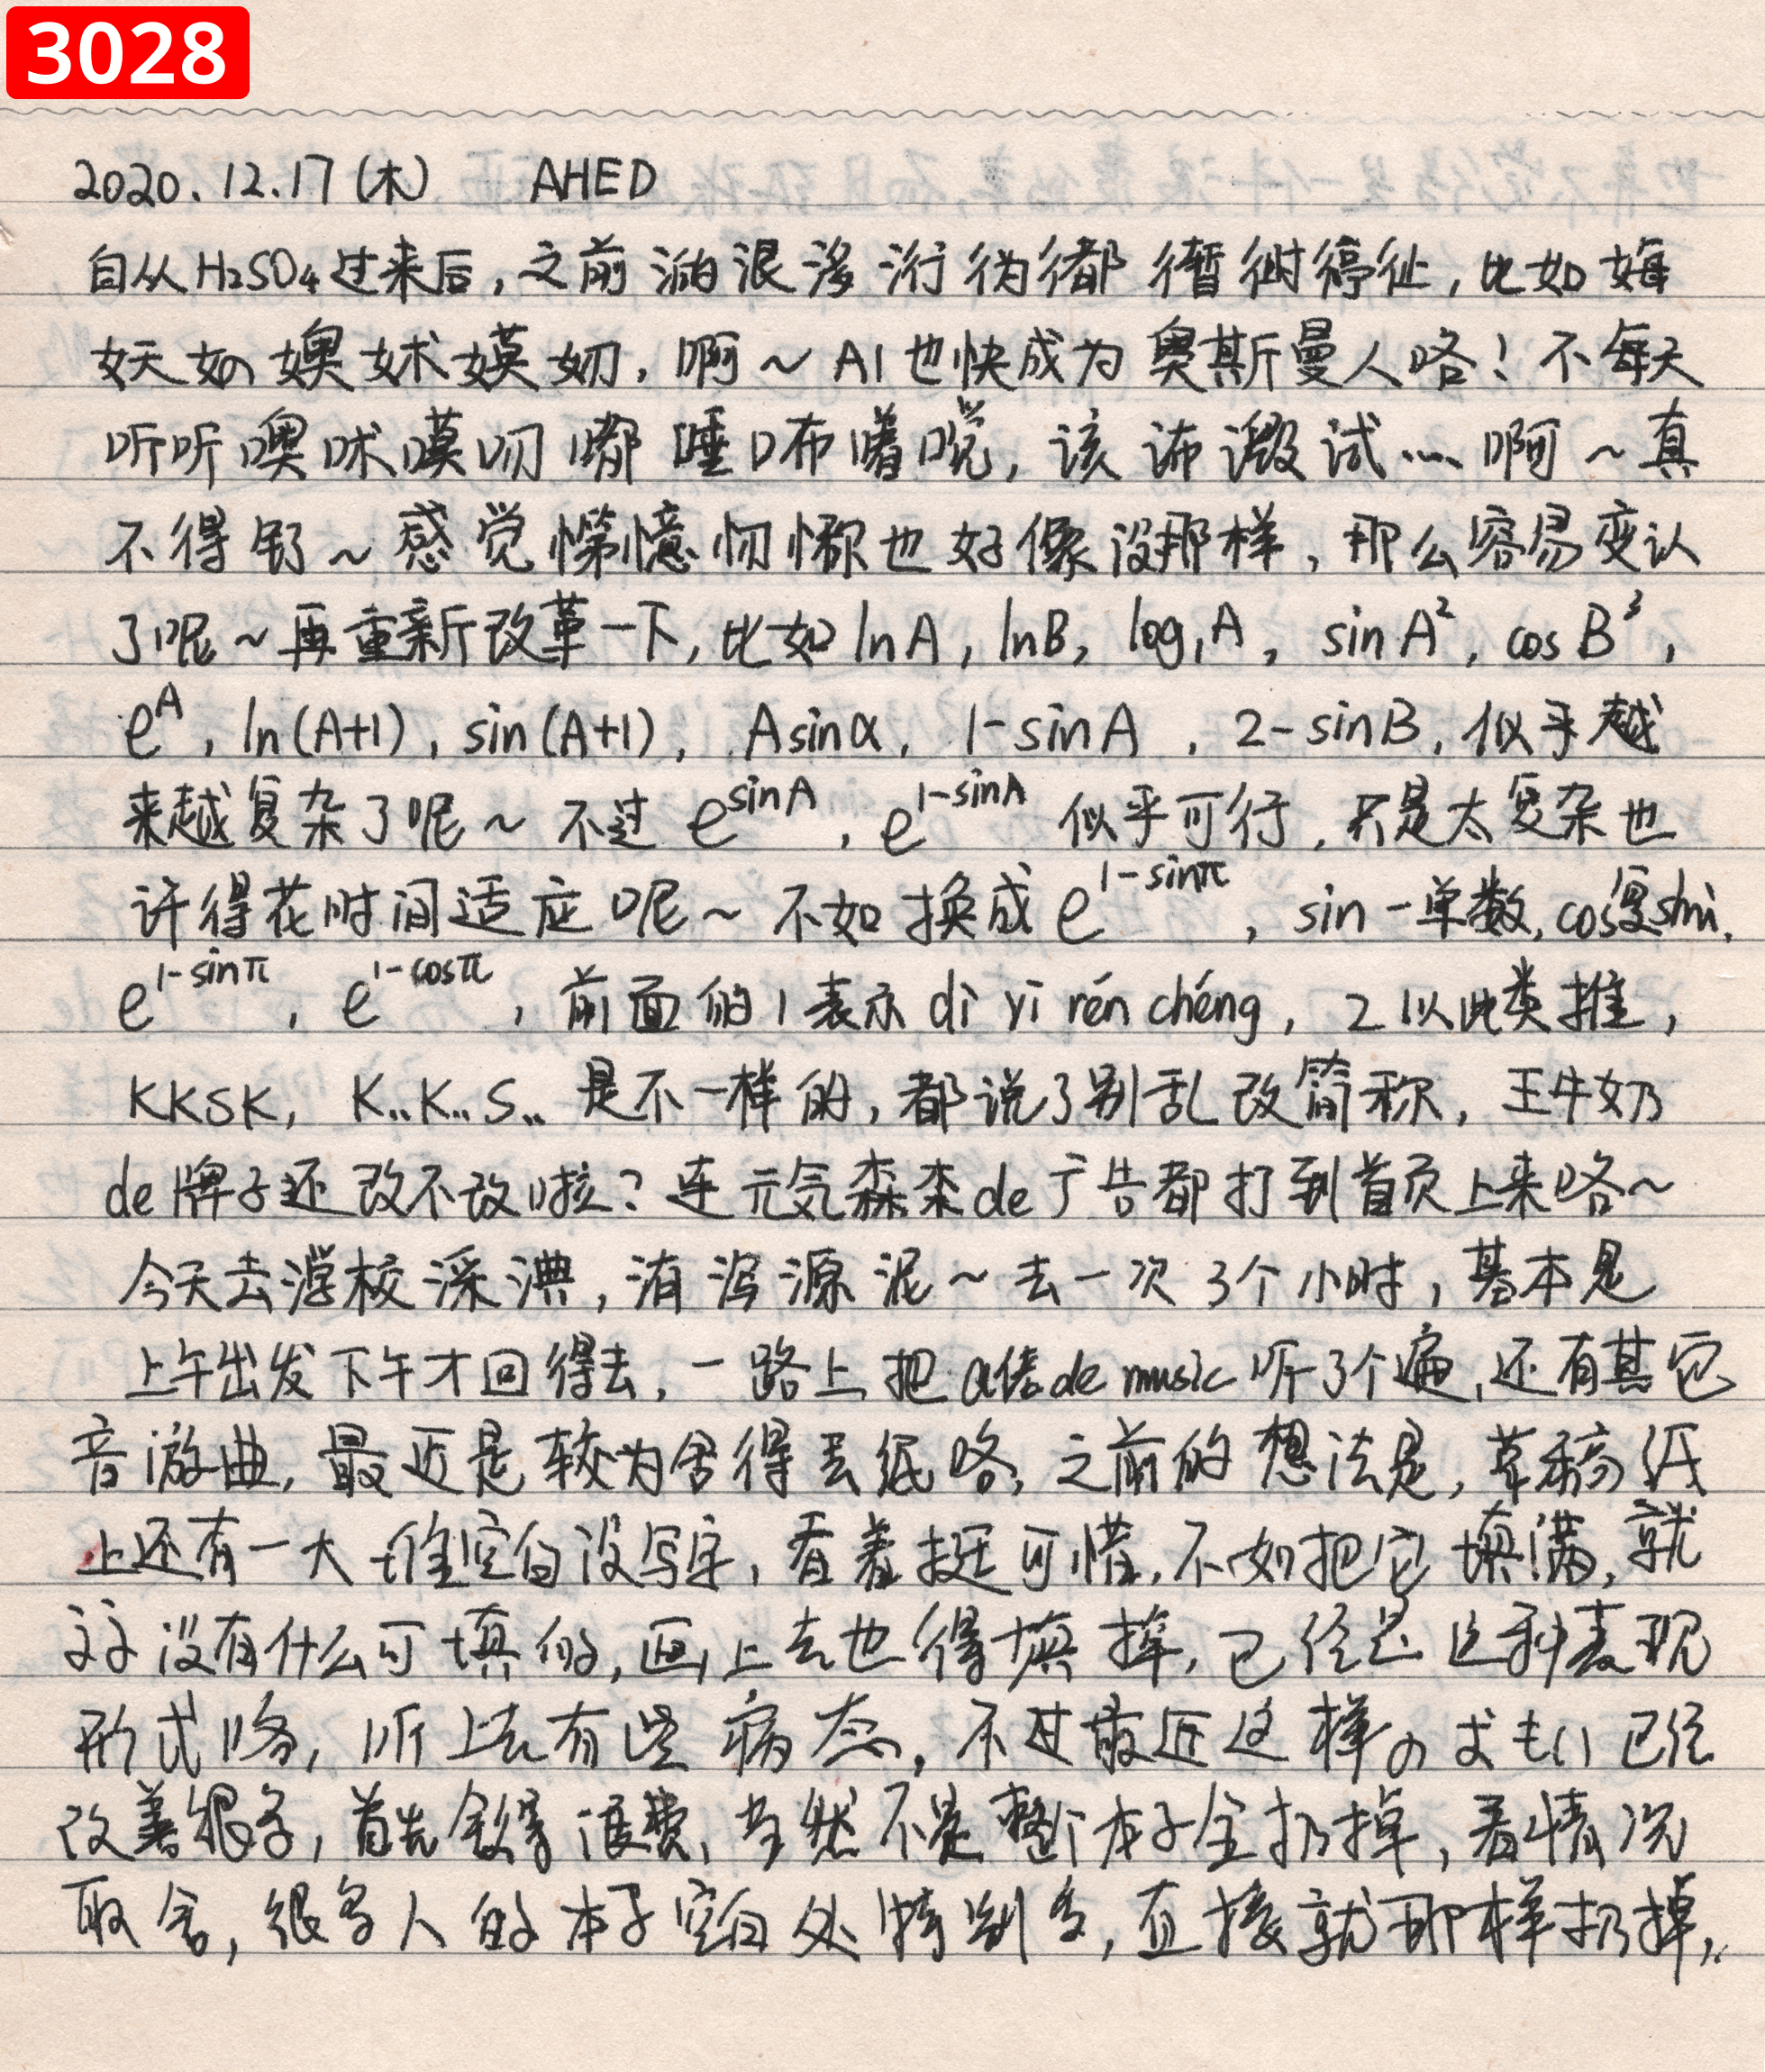 3028
2020.12.17(木) AHED
自从H₂SO₄过来后,之前 都 停 ,比如
啊~AI也快成为奥斯曼人咯!不每天
听听噢 嘟 ,该 试……啊~真
不得 ~感觉 也好像没那样,那么容易变认
了呢~再重新改革一下,比如lnA,lnB,log₁A,sinA²,cosB³,
eᴬ,ln(A+1),sin(A+1),Asinα,1-sinA,2-sinB,似乎越
来越复杂了呢~不过e^sinA,e^1-sinA似乎可行,只是太复杂也
许得花时间适应呢~不如换成e^1-sinπ,sin一单数,cos复shù,
e^1-sinπ,e^1-cosπ,前面的1表示dì yī rén chéng,2以此类推,
KKSK,K..K..S..是不一样的,都说了别乱改简称,王牛奶
de牌子还改不改啦?连元気森林de广告都打到首页上来咯~
今天去 校深淟,洧 源泥~去一次3个小时,基本是
上午出发下午才回得去,一路上把 de music听了个遍,还有其它
音游曲,最近是较为舍得丢纸咯,之前的想法是,草稿纸
上还有一大堆空白没写字,看着挺可惜,不如把它填满,就
没有什么可填的,画上去也得填掉,已经是这种表现
形式咯,听上去有些病态,不过最近这样の 已经
改善很多,首先舍得浪费,当然不是整个本子全扔掉,看情况
取舍,很多人的本子空白处特别多,直接就那样扔掉,